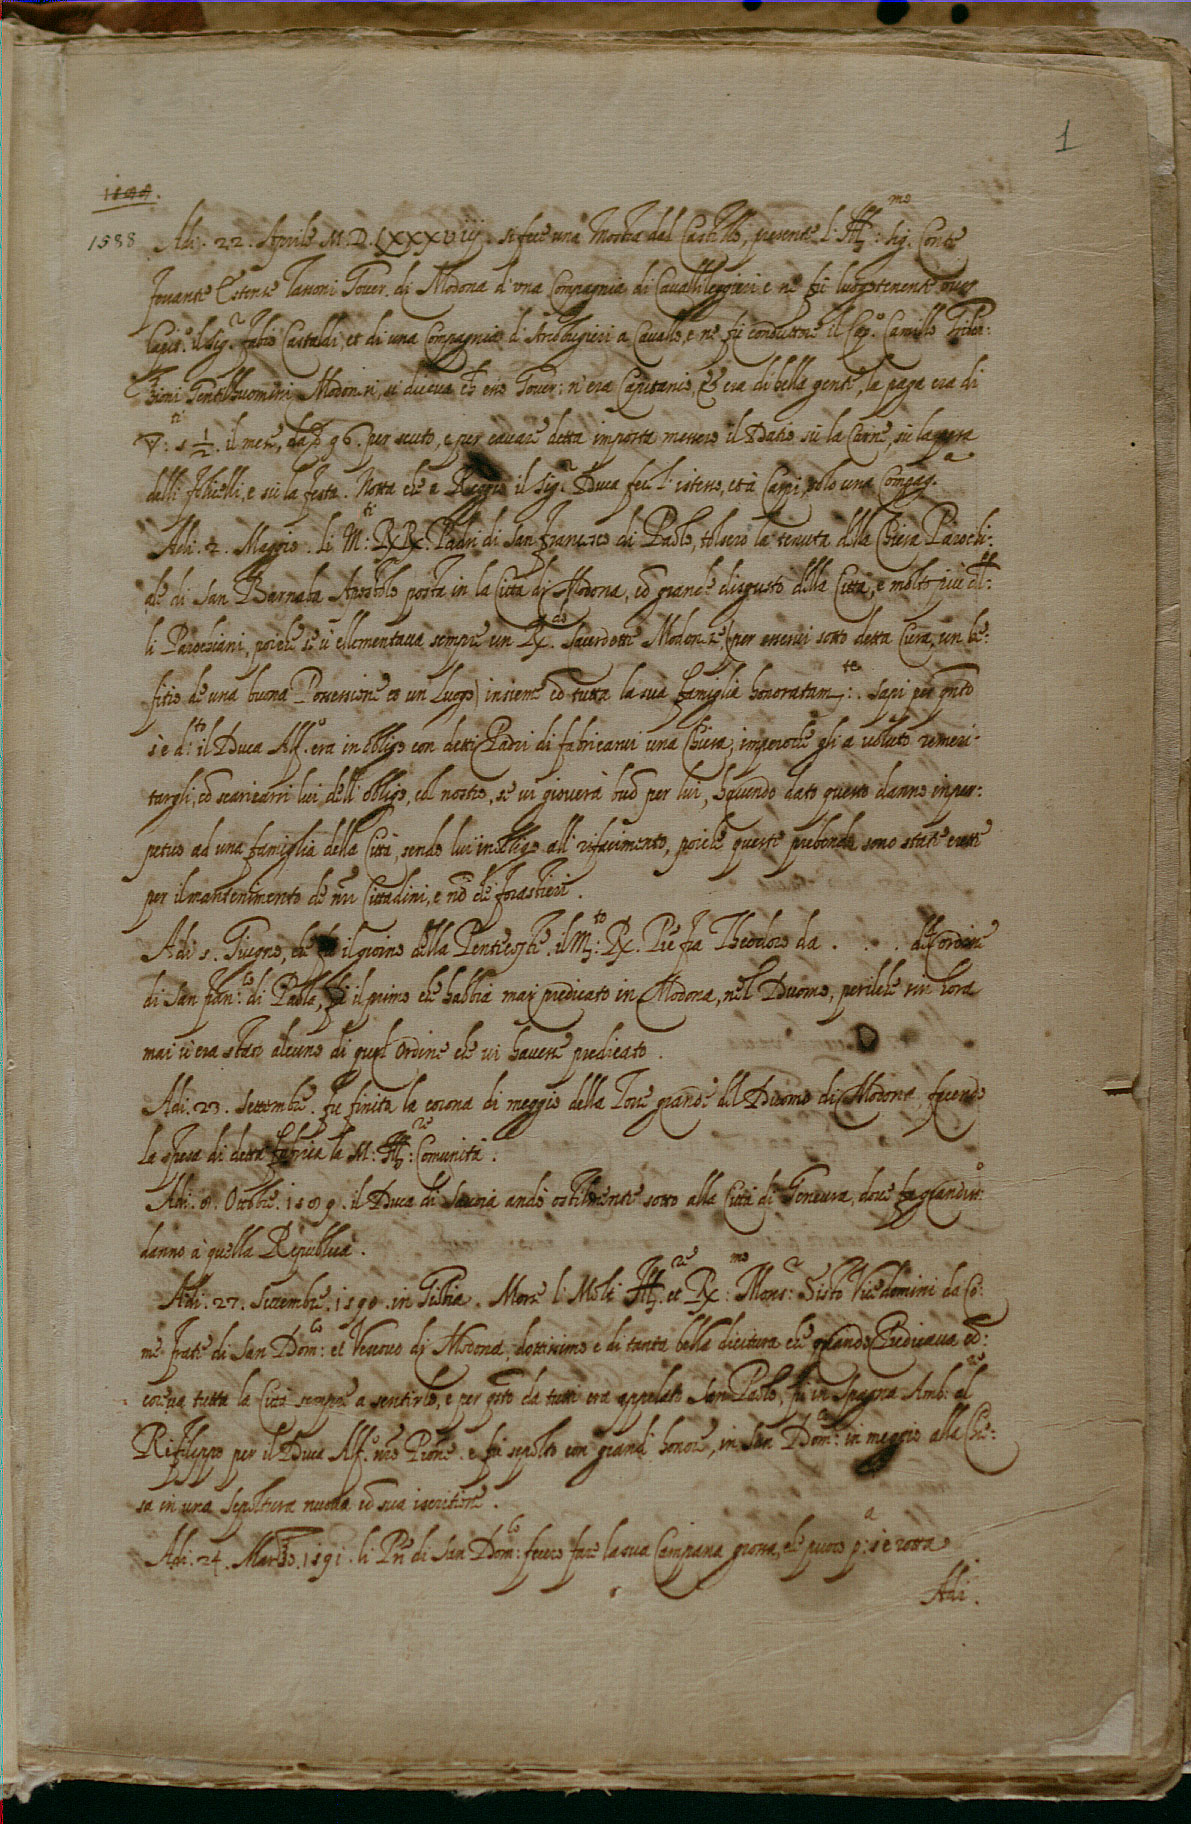 1
1588.
1588 Adi. 22. Aprile M.D.LXXXViij. si fece una Mostra dal Castello, presente l'Ill.mo: Sig. Conte
Estense Tassoni Gover. di Modona d'una Compagnia di Cavalli leggieri e ne fù luogotenente over
Capit.o il Sig.r Fabio Castaldi, et di una Compagnia d'Archibugieri a Cavallo, e ne fù conduttore il Cap.o Camillo
Gentilhuomini Modon.si, si diceva ch'esso Gover: n'era Capitanio, et era di bella gente, la paga era di
5 1/2. il mese, da 96. per scuto, e per cavare detta importa messero il Datio sù la Carne, sù la
delli folicelli, e sù la festa. Notta che a Reggio il Sig.r Duca fece l'istesso, et à Carpi, solo una Compag.a
Adi. 2. Maggio. li M.ti: RR: Padri di San Francesco di Paolo, tolsero la tenuta della Chiesa Parochi:
ale di San Barnaba Apostolo posta in la Città di Modona, cō grande disgusto della Città, e molto più dell:
li Parochiani, poiche se ù ellementava sempre un R.do Sacerdotte Modon.se (per esservi sotto detta Cura, un be:
fitio de una buona Possessione et un Luogo) insieme cō tutta la sua famiglia honoratam.te: Sapi per
s'è d.to: il Duca Alf.o era in obligo con detti Padri di fabricarvi una Chiesa, imperoche gli a voluto remeri-
targli, cō scaricarsi lui dell'obligo, col nostro, se vi gioverà buō per lui, havendo dato questo danno inper:
petuo ad una famiglia della Città, sendo lui in obligo all'rifacimento, poiche queste prebende sono state erette
per il mantenimento de nr̄i Cittadini, e nō de forastieri.
Adi 5. Giugno, che fu il giorno della Pentecoste. il M.to: R. P̄re fra Theodoro da . . . dell'ordine
di San Fran.co: di Paola, fù il primo che habbia mai predicato in Modona, nel Duomo, perilche sin hora
mai v'era stato alcuno di quel Ordine che vi havesse predicato.
Adi. 23. Settembre. fu finita la corona di meggio della Tore grande del Duomo di Modona, facendo
la spesa di detta fabrica la M: Ill.re: Comunità.
Adi. 8. Ottobre. 1589. il Duca di Savoia andò ostilmente sotto alla Città di Geneura, dove fa grandis.o
danno à quella Republica.
Adi. 27. 1590. in Giobia. Morse l'Molt Ill.re et R.mo: Mons.r: Sisto Vicedomini da Co:
mo frate di San Dom.co: et Vescovo di Modona, dottissimo e di tanta bella dicitura che quando Predicava cō:
coreva tutta la Città sempre a sentirlo, e per q̄sto da tutti era appelato San Paolo, fù in Spagna Amb.re al
Ri Filippo per il Duca Alf.o nr̄o Prone. e fù sepolto con grandi honore, in San Dom.co: in meggio alla Chie:
sa in una sepoltura nuova cō sua iscritione.
Adi. 24. Marzo. 1591. li P̄ri di San Dom.co: fecero fare la sua Campana grossa, che puoco p.a: s'è rotta
Adi.